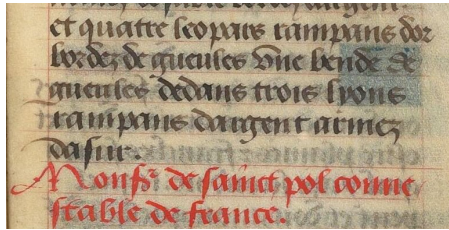 et quatre leopars rampans dor
bordez de gueules Vne bende de
gueules dedans trois lyons
rampans dargent armez
dasur.
Monsr de sainct pol conne
stable de france.